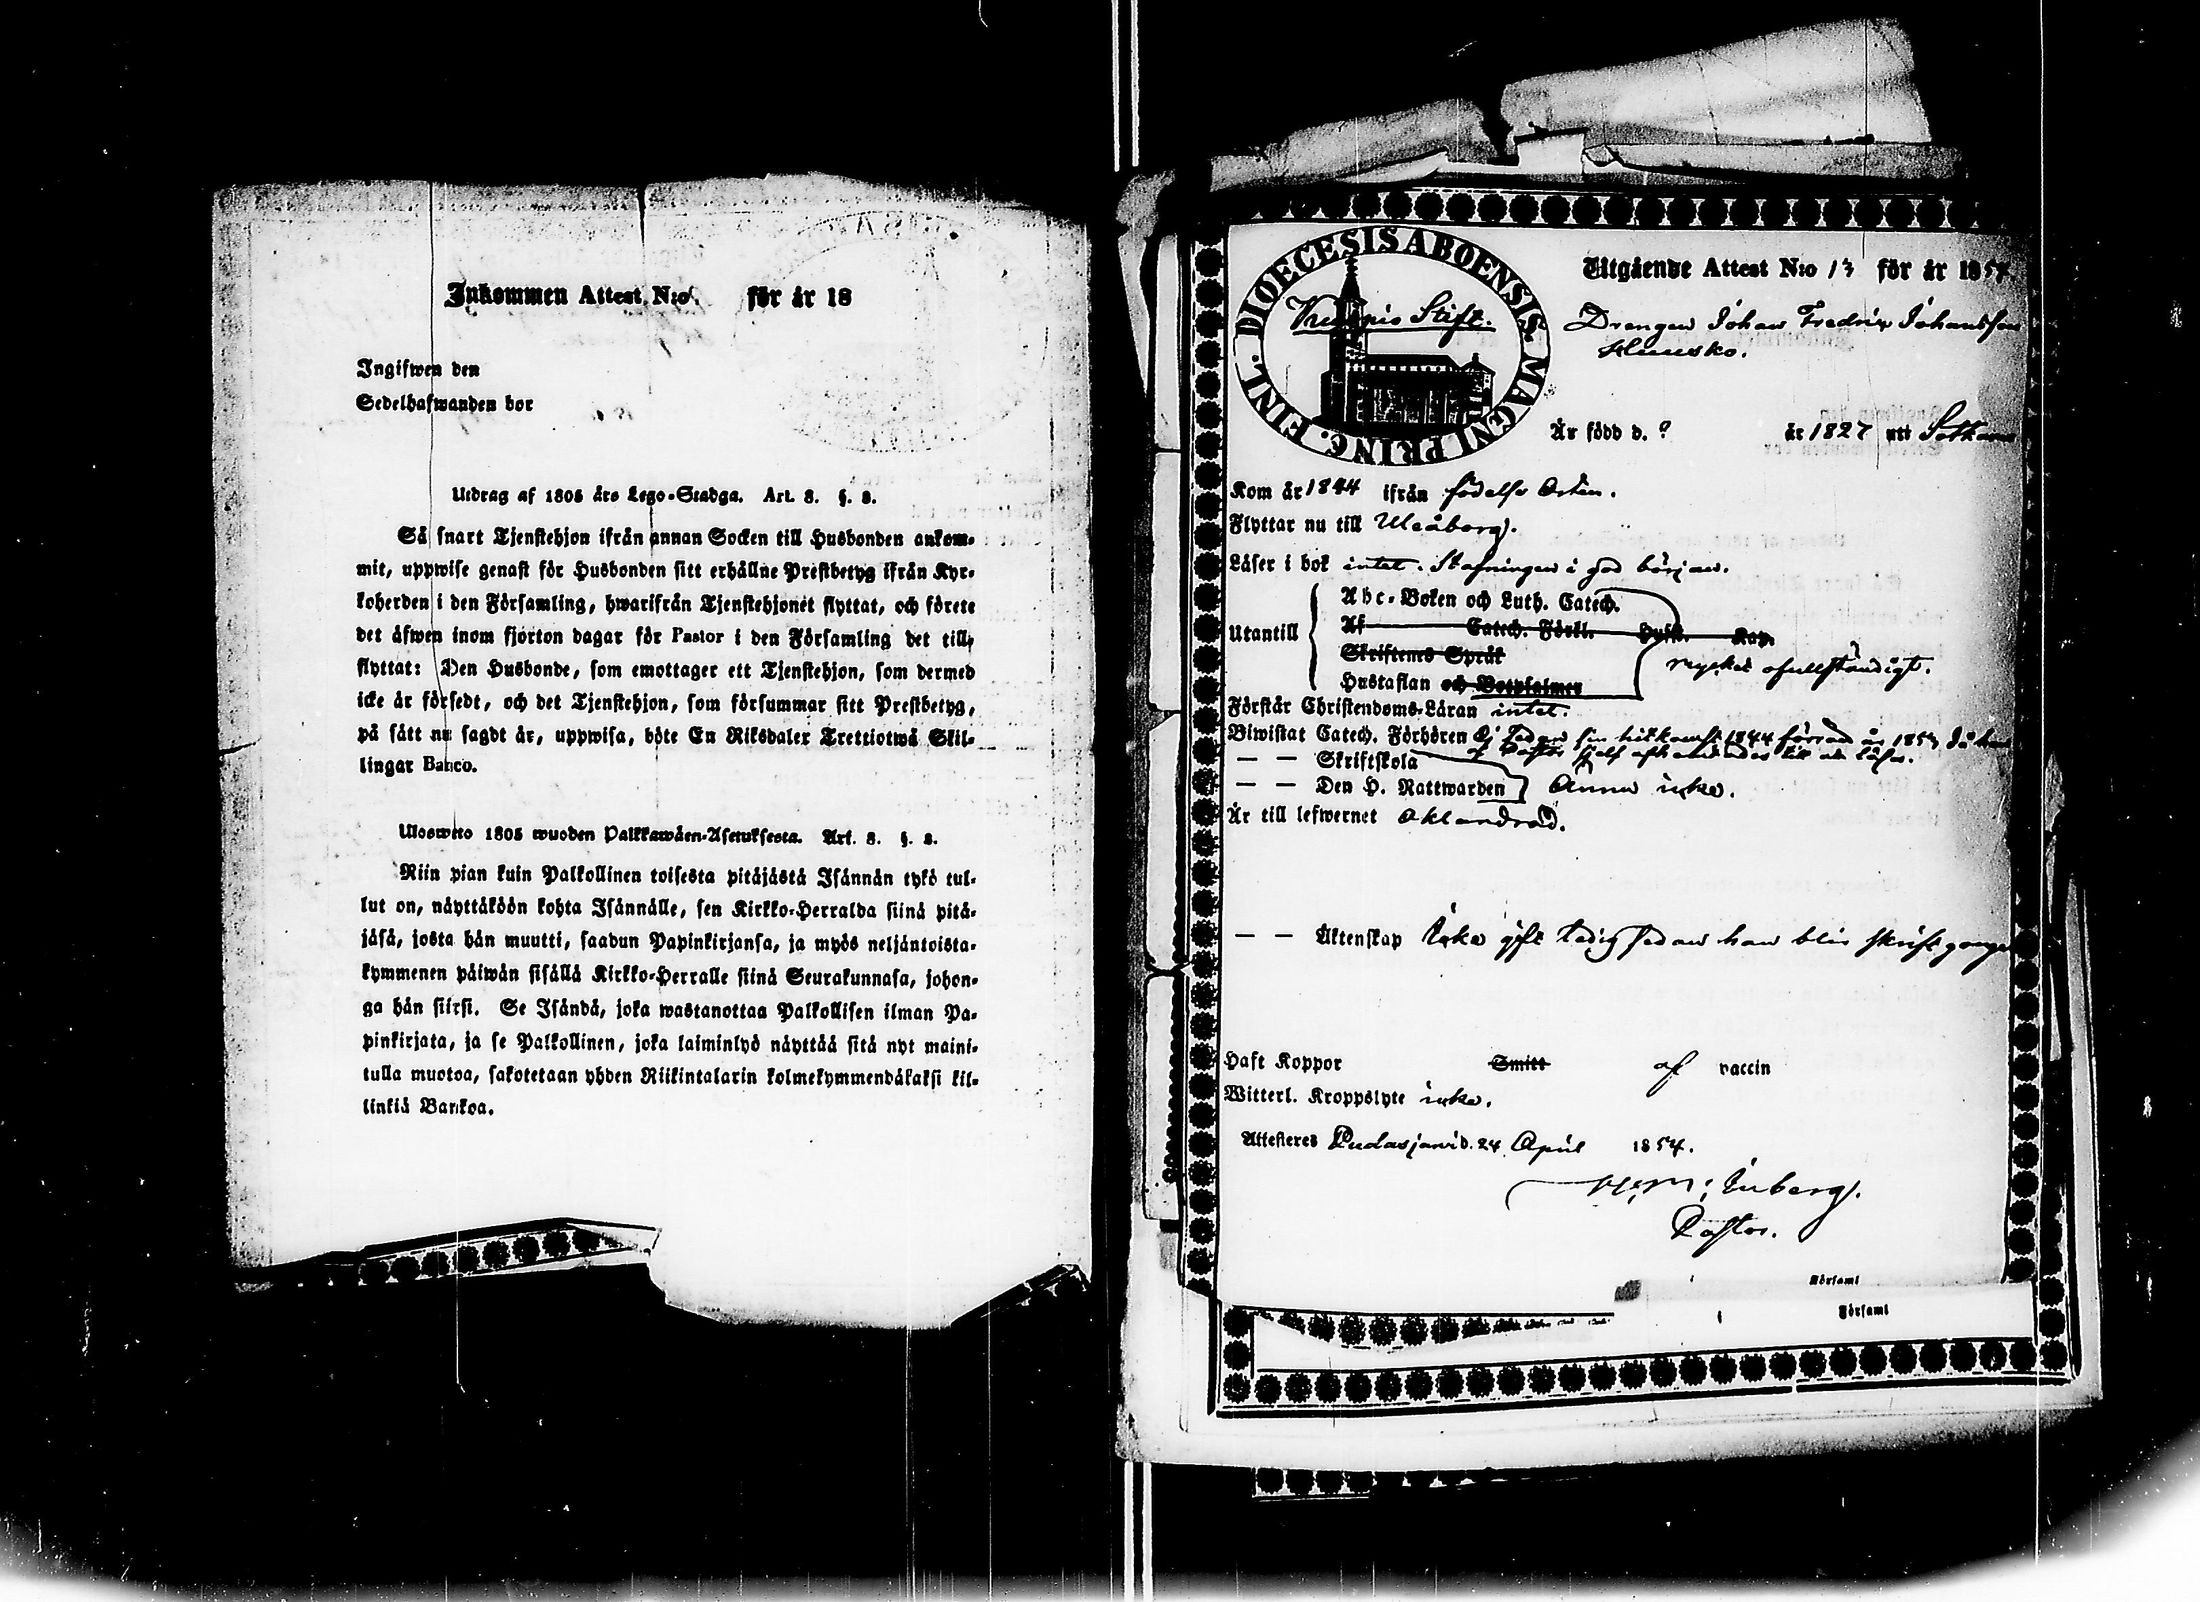 Inkommen Attest N:o för år 18
Ingifwen den
Sedelhafwanden bor
Utdrag af 1805 års Lego-Stadga. Art. 8. §. 8.
Så snart Tjenstehjon ifrån annan Socken till Husbonden ankom-
mit, uppwise genast för Husbonden sitt erhållne Prestbetyg ifrån Kyr-
koherden i den Församling, hwarifrån Tjenstehjonet flyttat, och förete
det äfwen inom fjorton dagar för Pastor i den Församling det till-
flyttat: Den Husbonde, som emottager ett Tjenstehjon, som dermed
icke är försedt, och det Tjenstehjon, som försummar sitt Prestbetyg,
på sätt nu sagdt är, uppwisa, böte En Riksdaler Trettiotwå Skil-
lingar Banco.
Uloswето 1805 wuoden Palkkawäen-Asetuksesta. Art. 8. §. 8.
Niin pian kuin Palkollinen toisesta pitäjästä Isännän tykö tul-
lut on, näyttäköön kohta Isännälle, sen Kirkko-Herralda siinä pitä-
jäsä, josta hän muutti, saadun Papinkirjansa, ja myös neljäntoista-
kymmenen päiwän sisällä Kirkko-Herralle siinä Seurakunnasa, johon-
ga hän siirsi. Se Isändä, joka wastanottaa Palkollisen ilman Pa-
pinkirjata, ja se Palkollinen, joka laiminlyö näyttää sitä nyt maini-
tulla muotoa, sakotetaan yhden Riikintalarin kolmekymmendäkaksi kil-
linkiä Bankoa.
DIOECESIS ABOENSIS. MAGNI PRINC. FINL.
Stift.
Utgående Attest N:o 13 för år 1854
Drengen Johan Fredric Johansson
Är född d. ? år 1827 utt Sotkamo
Kom år 1844 ifrån födelse Orten.
Flyttar nu till Uleåborg.
Läser i bok intet. Stafningen i god början.
Utantill
Abc-Boken och Luth. Catech.
Af Catech. Förkl. Hyfs. Kap.
Skriftens Språk
Hustaflan och Botpsalmer
mycket ofullständigt.
Förstår Christendoms-Läran intet.
Biwistat Catech. Förhören Ej sedan sin hitkomst 1844 förrän år 1853 då han
af Pastor sjelf afhemtades till at läsa.
— — Skriftskola
— — Den H. Nattwarden Ännu icke.
Är till lefwernet oklandrad.
— — Äktenskap Icke gift ledig sedan han blir skriftgången
Haft Koppor Smitt af vaccin
Witterl. Kroppslyte icke.
Attesteras Pudasjärvi d. 24 April 1854.
Pastor.
i Församl
i Församl